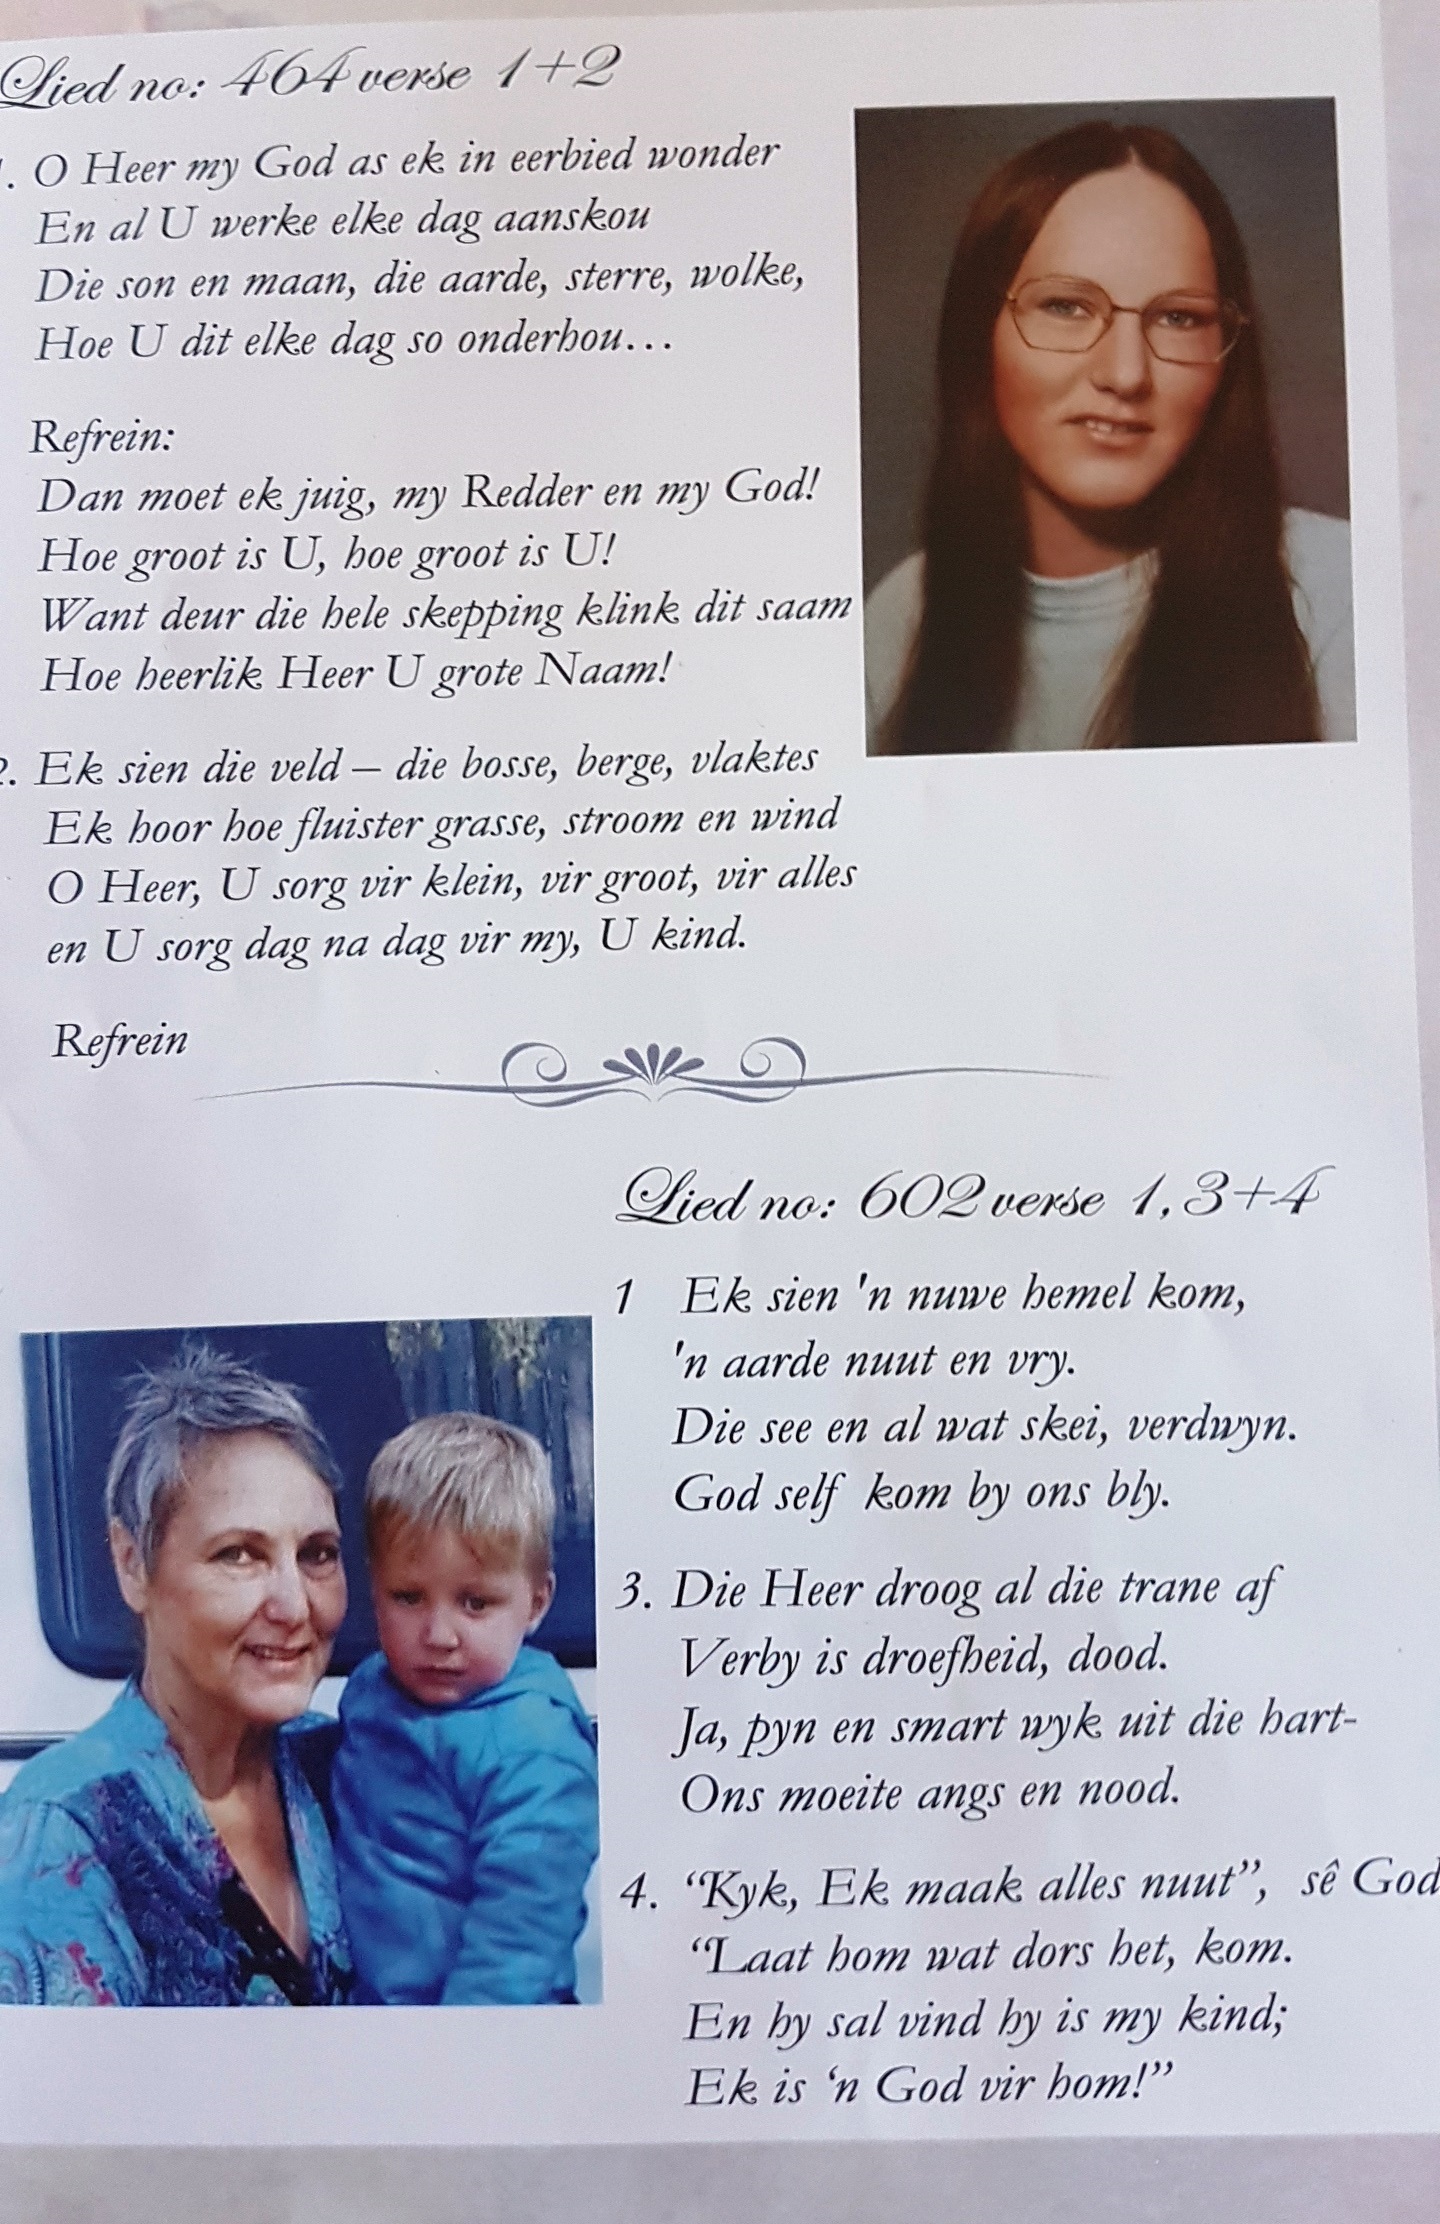 Lied no: 464 verse 1+2
1. O Heer my God as ek in eerbied wonder
En al U werke elke dag aanskou
Die son en maan, die aarde, sterre, wolke,
Hoe U dit elke dag so onderhou...
Refrein:
Dan moet ek juig, my Redder en my God!
Hoe groot is U, hoe groot is U!
Want deur die hele skepping klink dit saam
Hoe heerlik Heer U grote Naam!
2. Ek sien die veld – die bosse, berge, vlaktes
Ek hoor hoe fluister grasse, stroom en wind
O Heer, U sorg vir klein, vir groot, vir alles
en U sorg dag na dag vir my, U kind.
Refrein
Lied no: 602 verse 1, 3+4
1 Ek sien 'n nuwe hemel kom,
'n aarde nuut en vry.
Die see en al wat skei, verdwyn.
God self kom by ons bly.
3. Die Heer droog al die trane af
Verby is droefheid, dood.
Ja, pyn en smart wyk uit die hart-
Ons moeite angs en nood.
4. “Kyk, Ek maak alles nuut”, sê God
“Laat hom wat dors het, kom.
En hy sal vind hy is my kind;
Ek is ‘n God vir hom!”